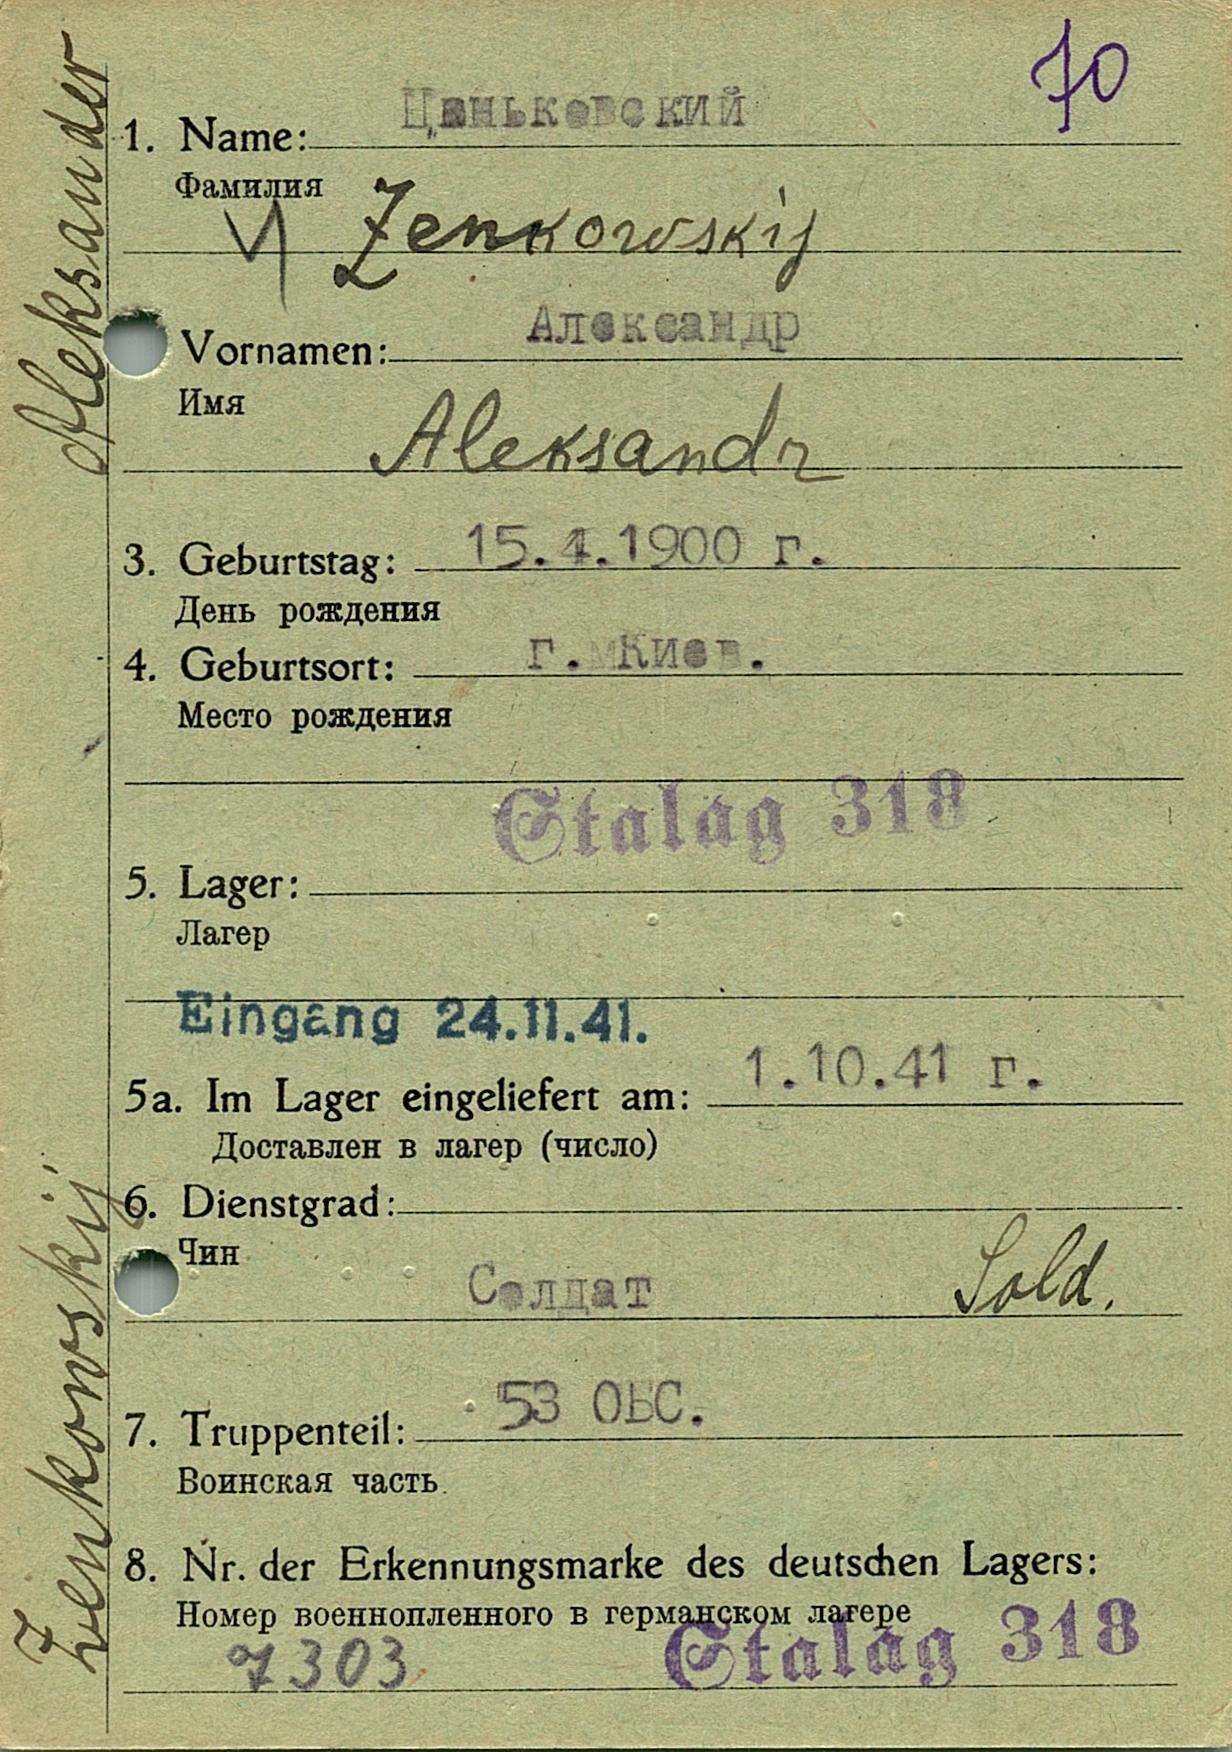 70
Aleksander
Zenkowskij
1. Name: Ценьковский
Фамилия
Zenkowskij
Vornamen: Александр
Имя
Aleksandr
3. Geburtstag: 15.4.1900 г.
День рождения
4. Geburtsort: г. Киев.
Место рождения
Stalag 318
5. Lager:
Лагер
Eingang 24.11.41.
5a. Im Lager eingeliefert am: 1.10.41 г.
Доставлен в лагер (число)
6. Dienstgrad:
Чин
Солдат Sold.
7. Truppenteil: 53 ОЬС.
Воинская часть.
8. Nr. der Erkennungsmarke des deutschen Lagers:
Номер военнопленного в германском лагере
7303 Stalag 318